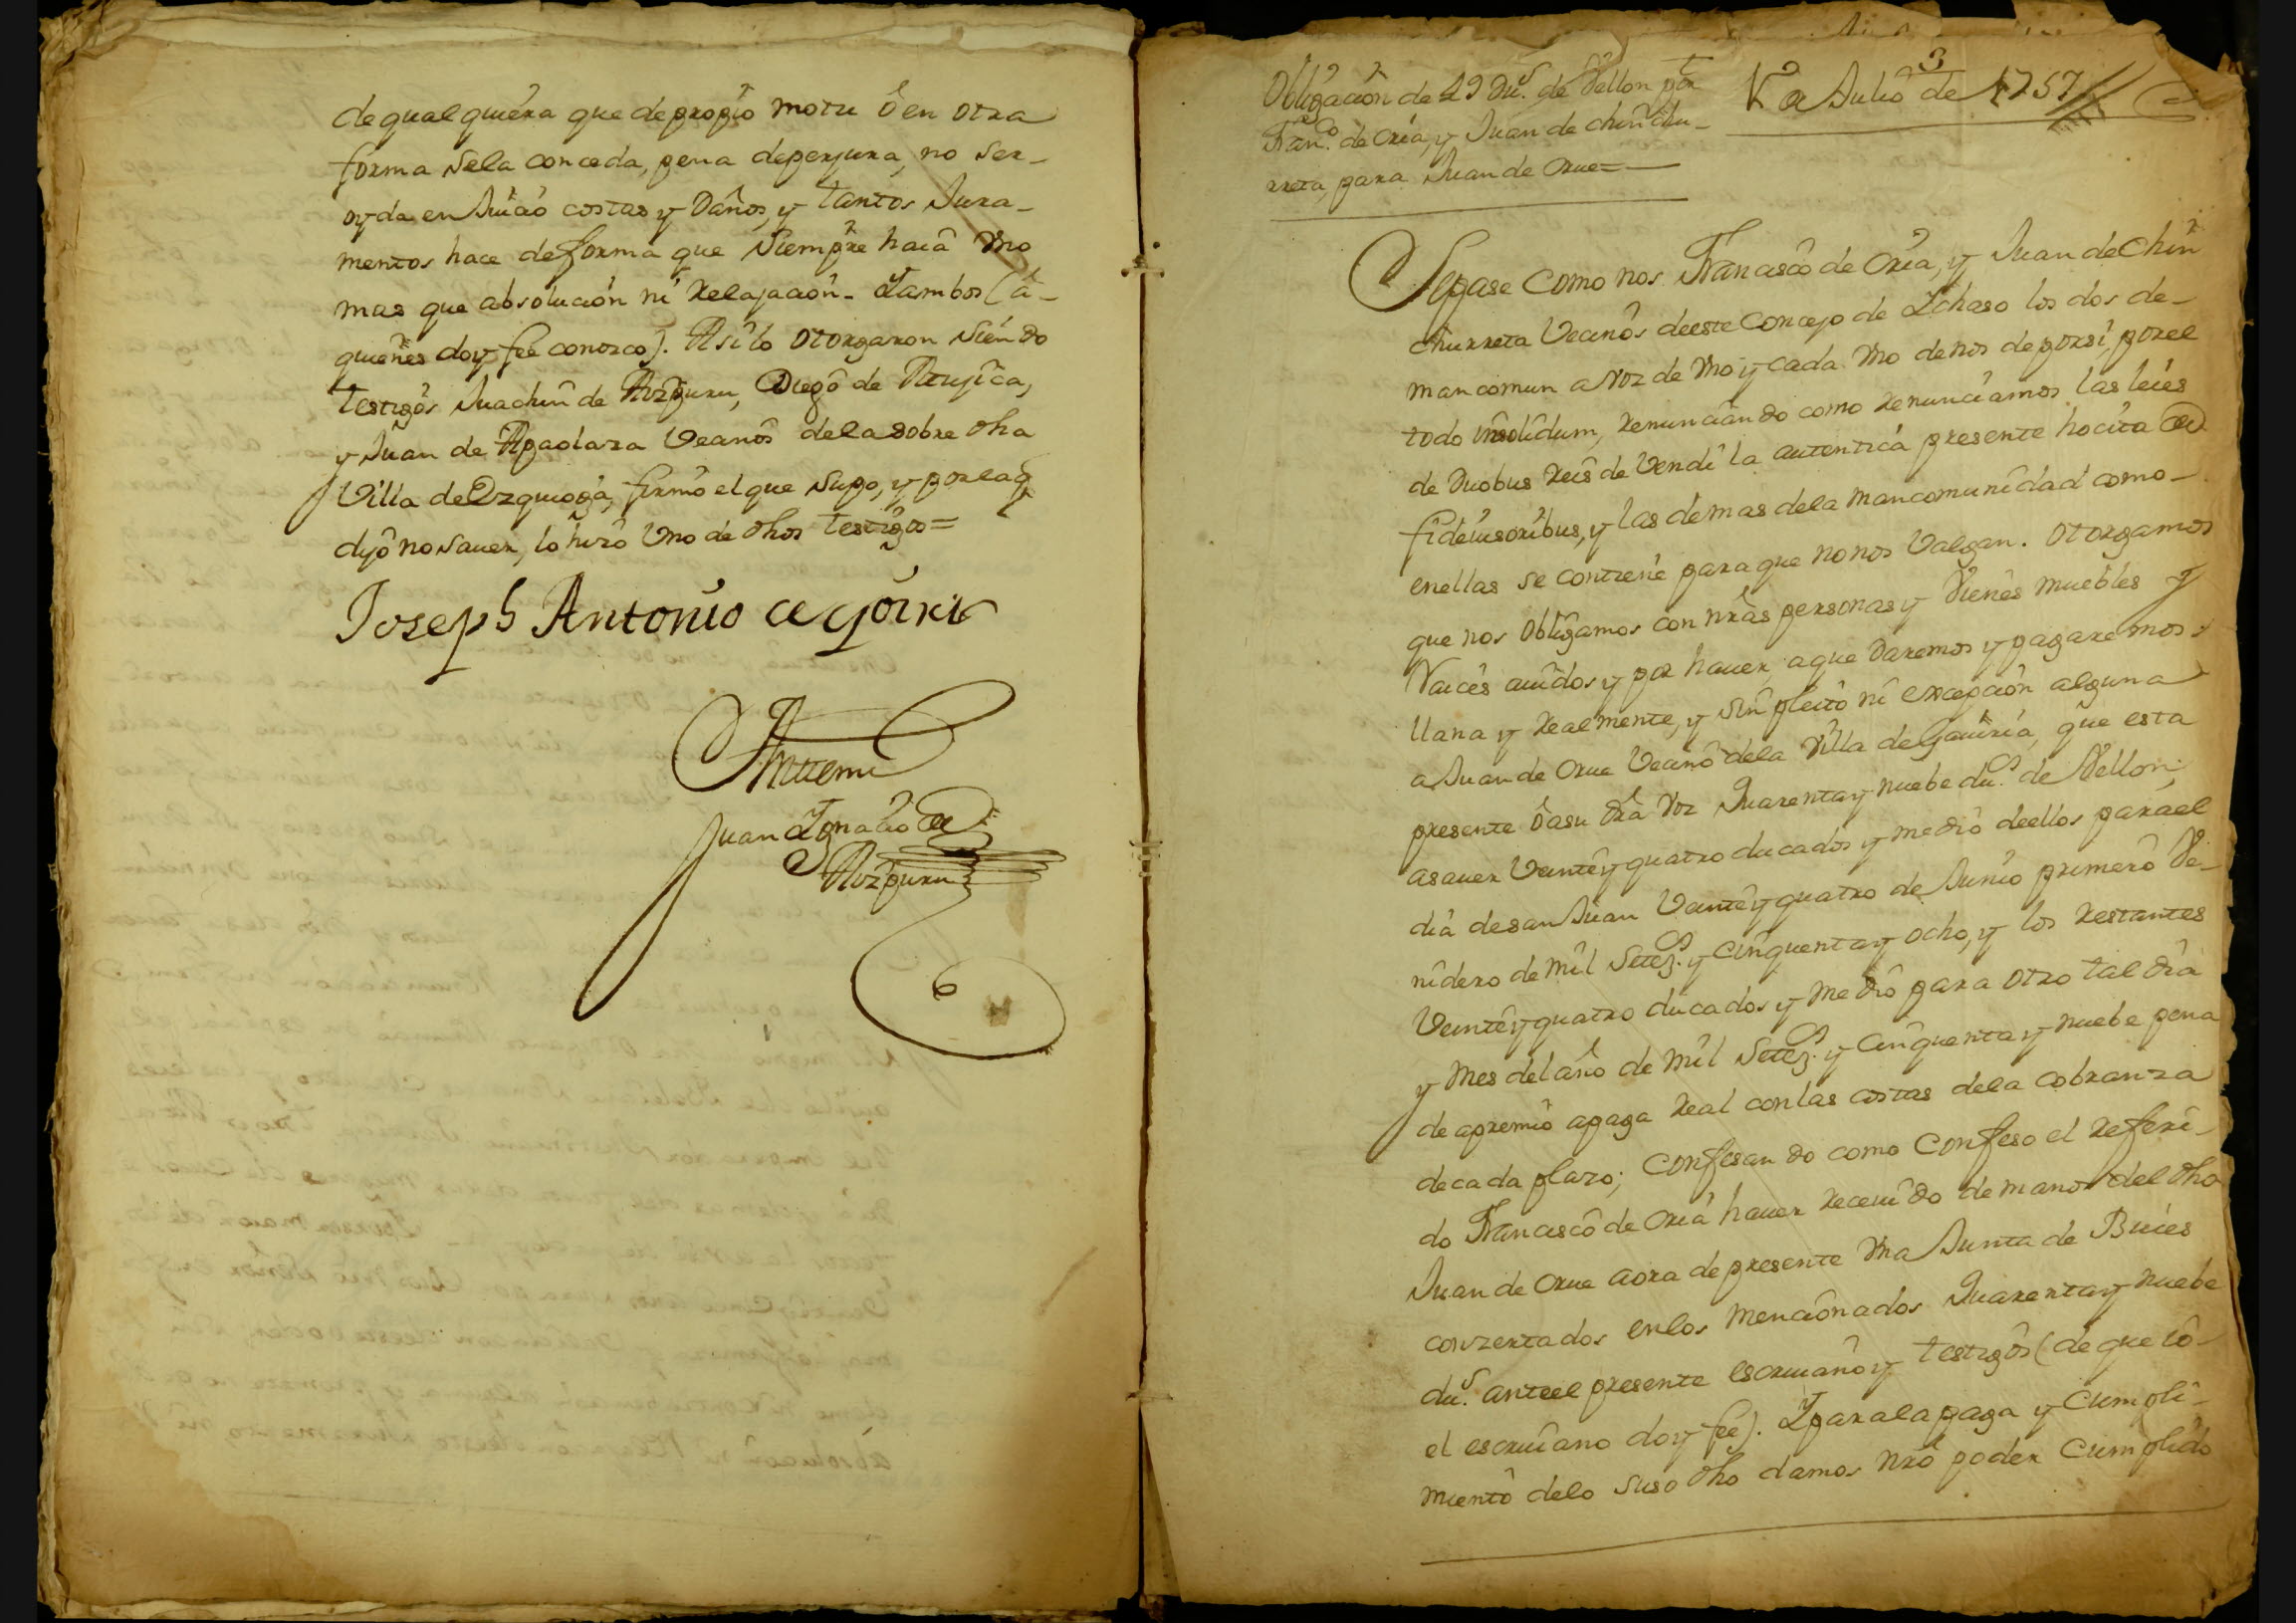 de qual quiera que de propio motu ô en otra
forma se la conceda, pena de perjura, no ser
oyda en Juicio costas y Daños, y tantos Jura-
mentos hace de forma que siempre haiâ Vno
mas que absolución ni relajación. Y ambos (â-
quienes doy fee conozco). Asi lo otorgaron siendo
testigos Juachin de Aizpuru, Diego de Mujica,
y Juan de Apaolaza Vecinos de la sobre dha
Villa de Ezquioga, firmó el que supo, y por la q
dijo no saver, lo hizo Vno de dhos testigos=
Joseph Antonio de goiri
Antemi
Juan Ignacio de
Aizpuru
Obligación de 49 Du.s de Vellon por
Fran.co de Oria, y Juan de chinchu-
rreta, para Juan de Orue=
3
de Julio de 1757
Sepase como nos Francisco de Oria, y Juan de Chin
churreta Vecinos de este Concejo de Ichaso los dos de-
man comun a voz de Vno y cada Vno de nos de por si, por el
todo insolidum, renunciando como renunciamos las leies
de duobus reis de vendi la autentica presente hocita de
fideiusoribus, y las demas de la mancomunidad como-
en ellas se contiene para que no nos Valgan. Otorgamos
que nos obligamos con nras personas y Vienes muebles y
Raices auidos y por hauer, a que daremos y pagaremos
llana y realmente, y sin pleito ni excepción alguna
a Juan de Orue Vecino de la Villa de Gauiria, que esta
presente ô a su dra Voz Quarenta y nuebe du.s de Vellon;
a sauer Veinte y quatro ducados y medio de ellos para el
dia de san Juan Veinte y quatro de Junio primero Ve-
nidero de mil Setez.s y cinquenta y ocho, y los restantes
Veinte y quatro ducados y medio para otro tal dia
y mes del año de mil Setez.s y cinquenta y nuebe pena
de apremio a paga real con las costas de la cobranza
de cada plazo; Confesando como Confeso el referi-
do Francisco de Oria hauer receuido de mano del dho
Juan de Orue aora de presente Vna Junta de Buies
conzertados en los mencionados Quarenta y nuebe
du.s ante el presente escriuano y testigos (de que iô-
el escriuano doy fee). Y para la paga y cumpli-
miento de lo suso dho damos nrô poder Cumplido